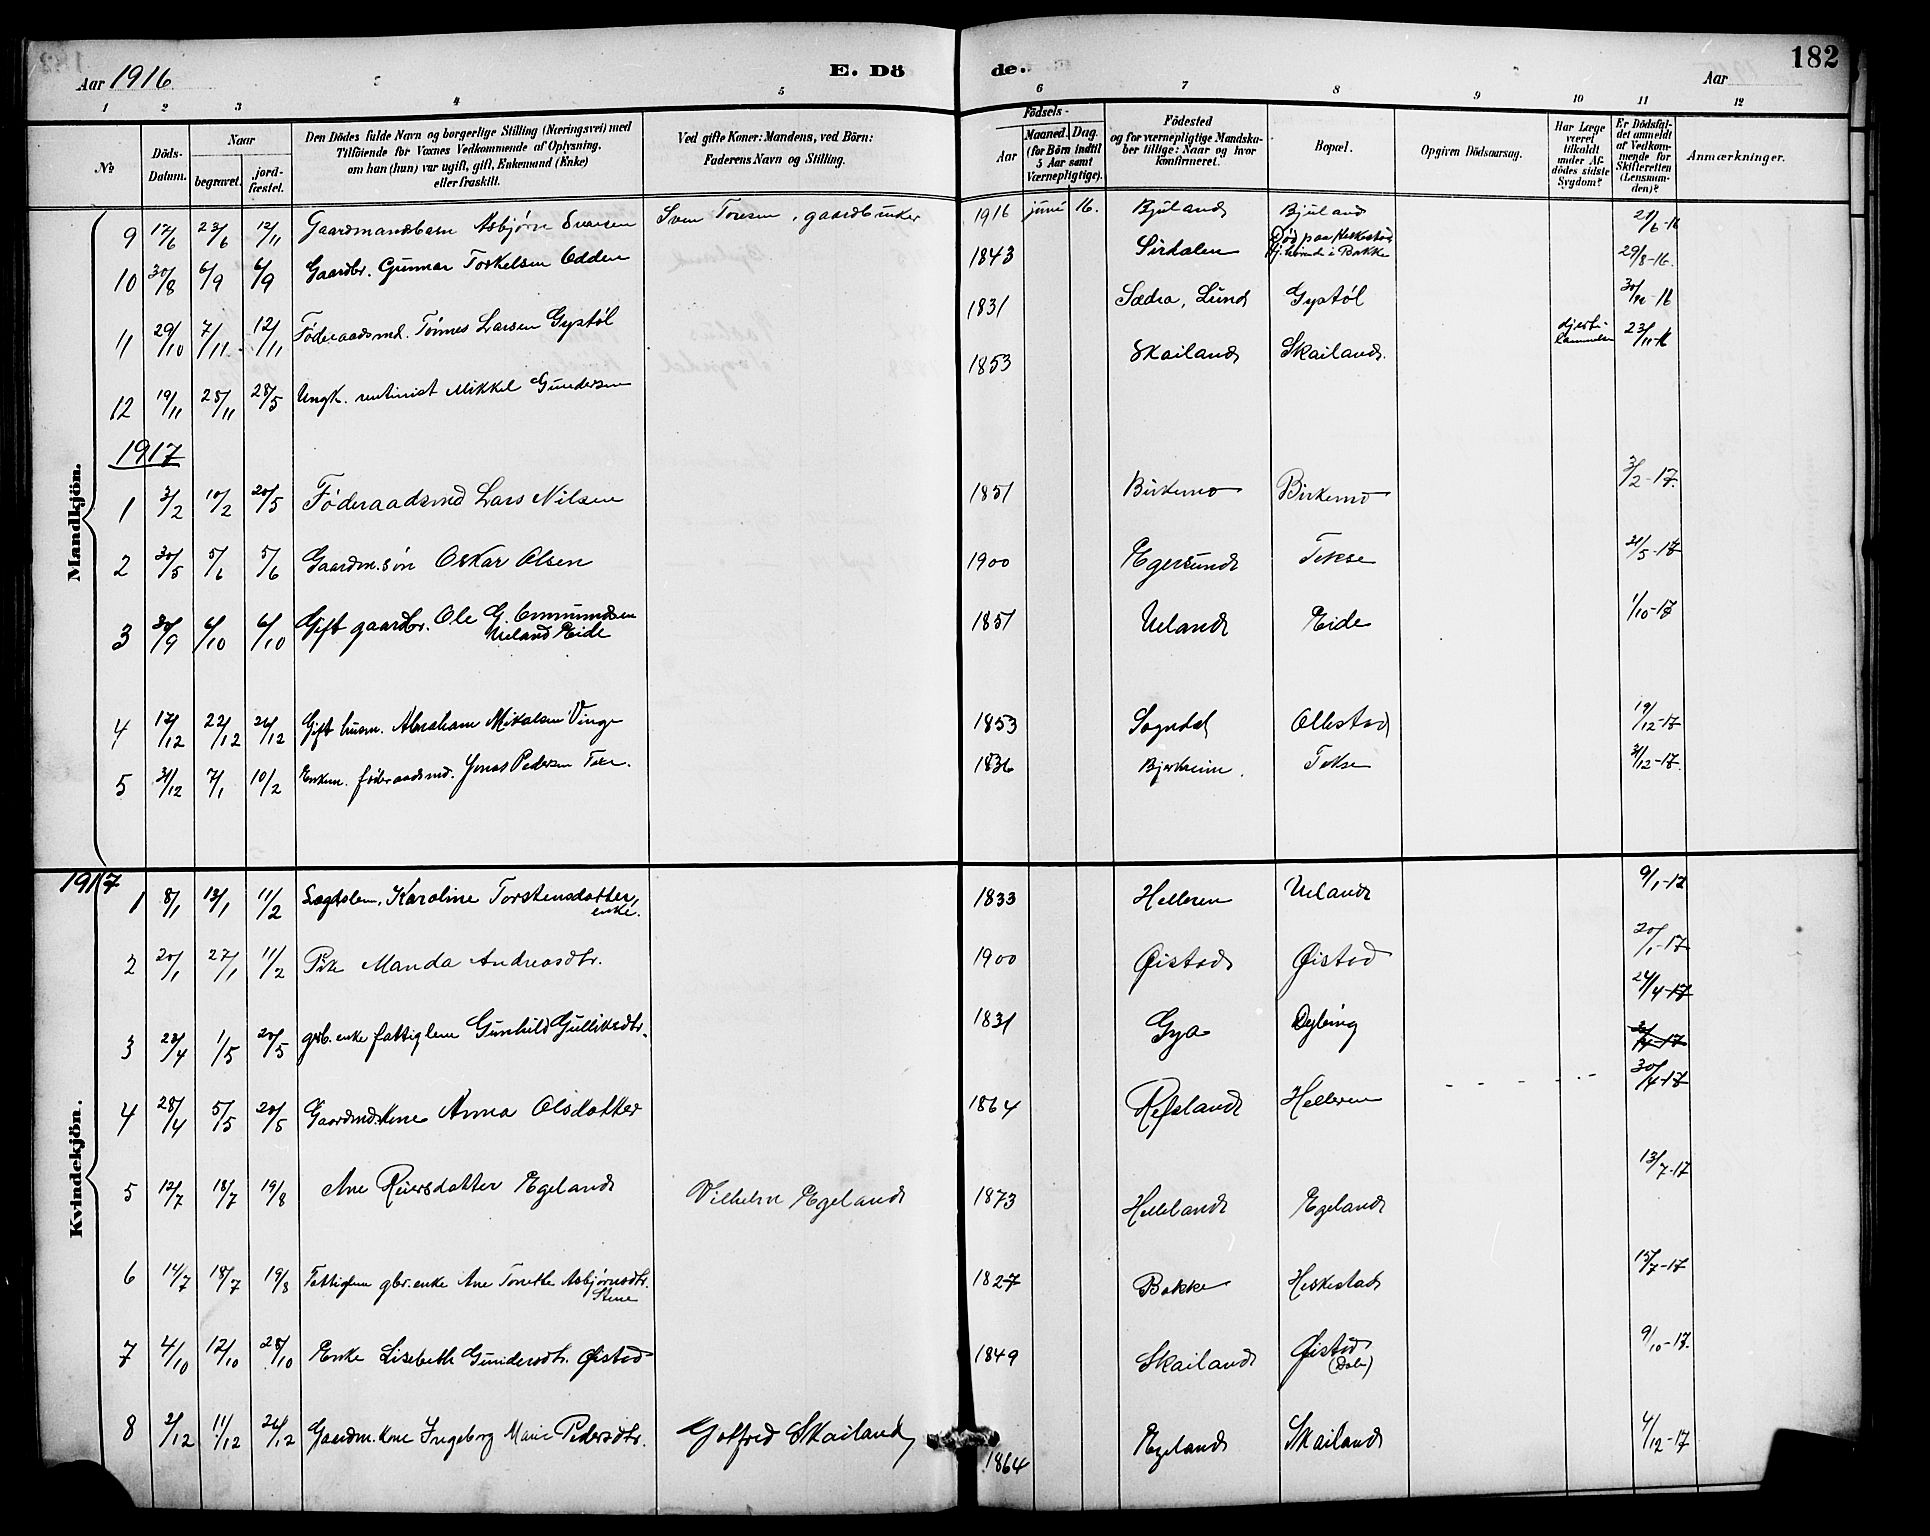 182
Aar 1916. E. Dö de. Aar
1 2 3 4 5 6 7 8 9 10 11 12
№ Döds-Datum. Naar begravet. jordfæstet. Den Dödes fulde Navn og borgerlige Stilling (Næringsvei) med Tilföiende for Voxnes Vedkommende af Oplysning, om han (hun) var ugift, gift, Enkemand (Enke) eller fraskilt. Ved gifte Koner: Mandens, ved Börn: Faderens Navn og Stilling. Födsels- Aar Maaned. Dag. (for Börn indtil 5 Aar samt Værnepligtige). Födested og for værnepligtige Mandskaber tillige: Naar og hvor konfirmeret. Bopæl. Opgiven Dödsaarsag. Har Læge været tilkaldt under Afdödes sidste Sygdom? Er Dödsfaldet anmeldt af Vedkommende for Skifteretten (Lensmanden)? Anmærkninger.
Mandkjön.
9 17/6 23/6 12/11 Gaardmandsbarn Asbjørn Svensen Sven Toresen, gaardbruker 1916 juni 16. Bjuland Bjuland 21/6-16
10 30/8 6/9 6/9 Gaardbr. Gunnar Torkelsen Odden 1843 Sirdalen Død paa Heskestad, hj.hørende i Bakke 29/8-16.
11 29/10 7/11 12/11 Føderaadsmd. Tønnes Larsen Gystøl 1831 Sædra, Lund Gystøl 16
12 19/11 25/11 28/5 Ungk. rentenist Mikkel Gundersen 1853 Skailand Skailand. 23/11-16
1917
1 3/2 10/2 20/5 Føderaadsmd Lars Nilsen 1851 Birkemo Birkemo 3/2-17.
2 30/5 5/6 5/6 Gaardm.søn Oskar Olsen 1900 Egersund Tekse 31/5-17
3 30/9 6/10 6/10 Gift gaardbr. Ole G. Omundsen Ueland Eide 1851 Ueland Eide 1/10-17
4 17/12 22/12 26/12 Gift husm. Abraham Mikalsen Vinge 1853 Sogndal Ollestad 19/12-17
5 31/12 7/1 10/2 Enkem. føderaadsmd. Jonas Pedersen 1836 Bjerkreim. Tekse 31/12-17.
1917
Kvindekjön.
1 8/1 13/1 11/2 Lægdslem, Karoline Torstensdatter, enke. 1833 Helleren Ueland 9/1-17
2 20/1 27/1 11/2 Pike Manda Andreasdtr. 1900 Øistad Øistad 20/1-17
3 23/4 1/5 20/5 gbr. enke fattiglem Gunhild Gulliksdtr. 1831 Gya Dybing 24/4-17
4 28/4 5/5 20/5 Gaardmd.kone Anna Olsdatter 1864 Refsland Helleren 30/4-17
5 12/7 18/7 19/8 Ane Reiersdatter Egeland Vilhelm Egeland 1873 Helleland Egeland 13/7-17
6 14/7 18/7 19/8 Fattiglem gbr. enke Ane Tonette Asbjørnsdtr. Stene 1827 Bakke Heskestad 15/7-17
7 4/10 12/10 28/10 Enke Lisebeth Gundersdtr. Øistad 1849 Skailand Øistad (Dale) 9/10-17.
8 2/12 11/12 26/12 Gaardm.kone Ingeborg Marie Pedersdtr. Gotfred Skailand 1864 Egeland Skailand 4/12-17